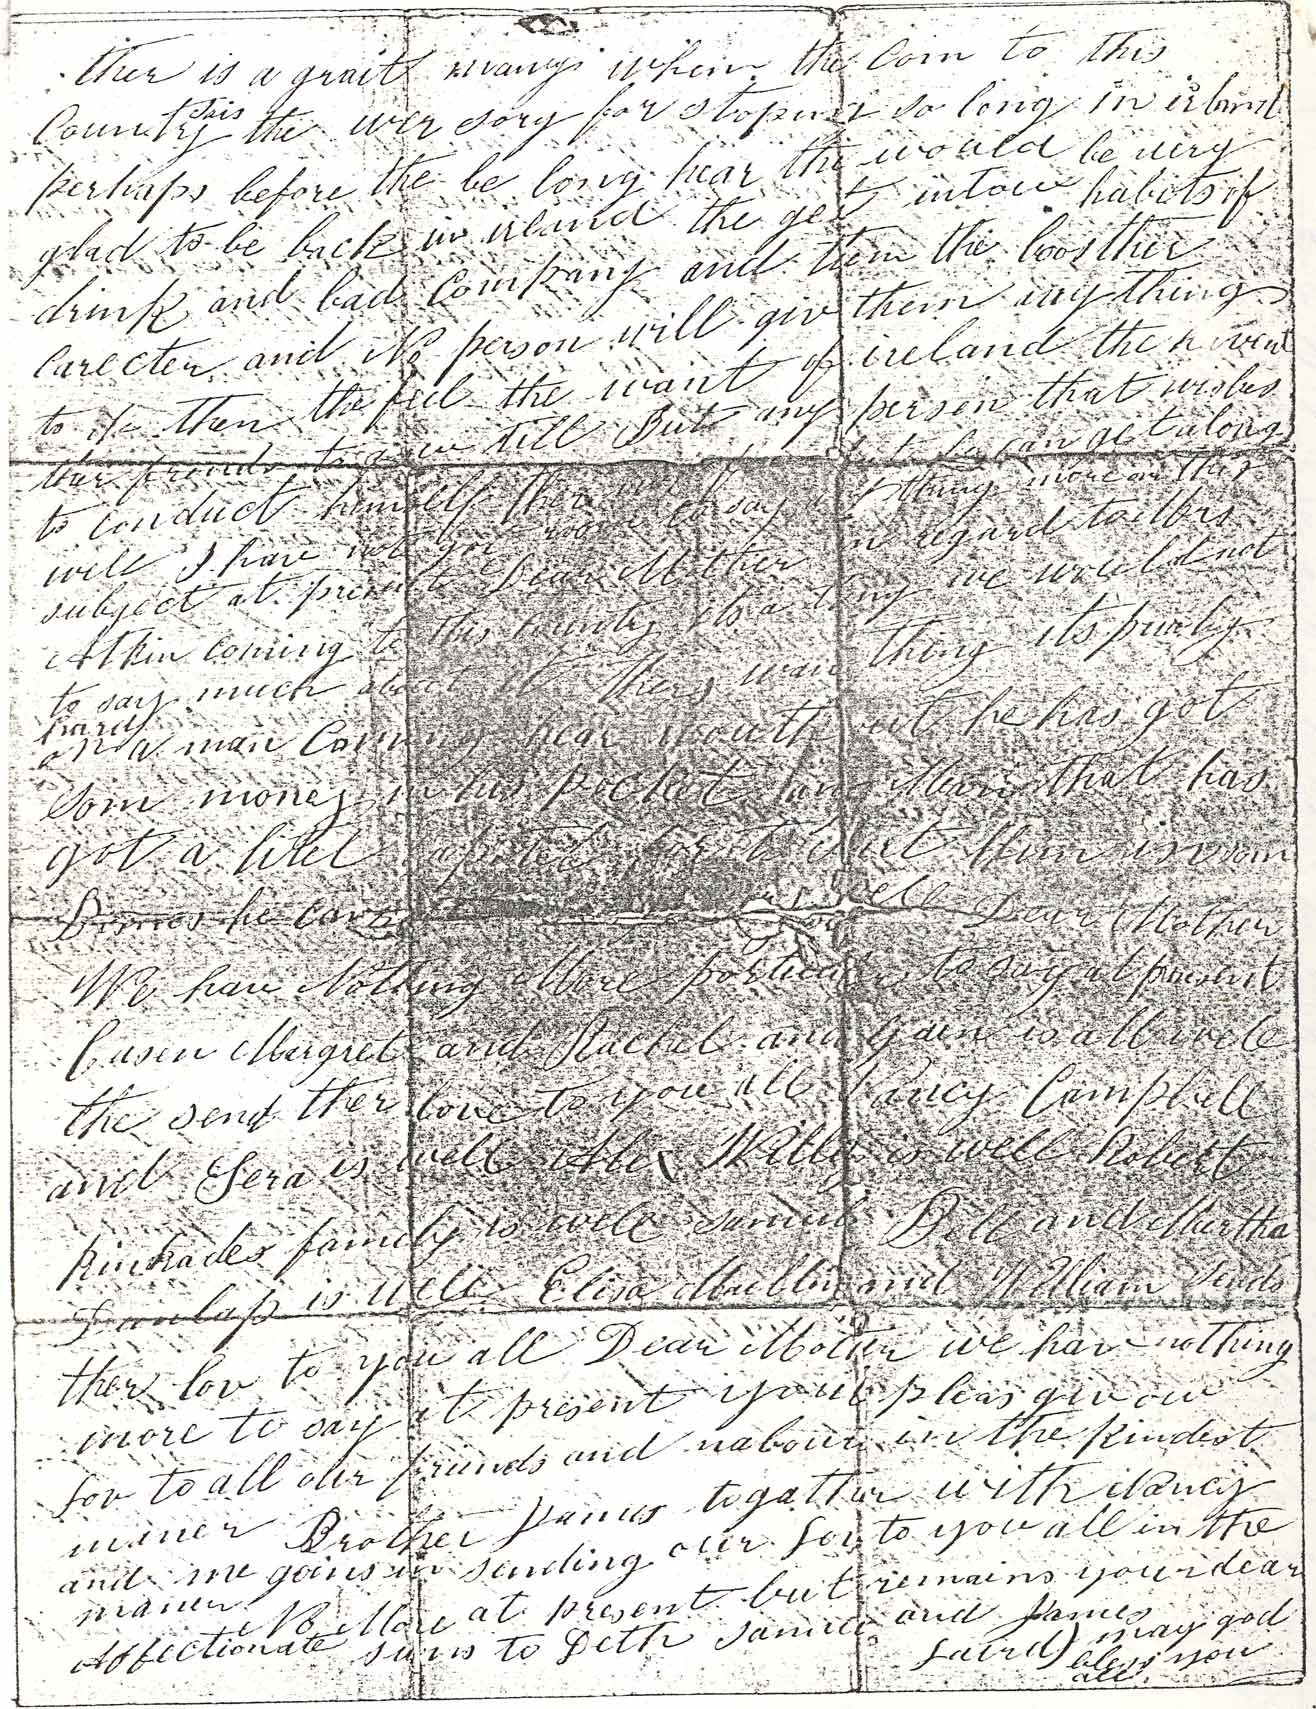 ther is a grait many when the com to this
Country this the wer sory for stoping so long in irland
perhaps before the be long hear the would be very
glad to be back in irland the get intow habits of
drink and bad Company and them the loos ther
carecter and No person will giv them any thing
to do then the feel the want of ireland the
ther frends to till But any person that wishes
to conduct himself ther can get along
well I hav not got room to say thing more on this
subject at present Dear Mother in regard to Mrs
Atkin coming to this Country its a thing we would not
to say much about it Thers wan thing its purty
hard
on a man Coming hear without he has got
som money in his pocket any Man that has
got a litel but Him
he can well Dear Mother
We have Nothing More porticular to say at present
Cusen Margret and Rachal and is all well
the send ther love to you all Nancy Campbell
and Sera is well Alex Willy is well Robert
Kinkades family is well Samuel Bell and Martha
Dunlap is well Elisa and William sends
ther lov to you all Dear Mother we hav nothing
more to say at present you pleas giv our
lov to all our friends and nabours in the kindest
maner Brother James togather with Nancy
and me goins in sending our lov to you all in the
maner
No More at present but remains your dear
Affectionate suns to Deth Samuel and James
Laird) may god
bless you
all